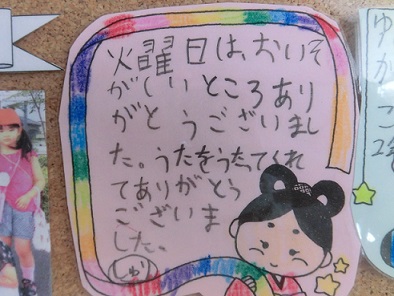 火曜日は、おいそ
がしいところあり
がとうございまし
た。うたをうたってくれ
てありがとう
ございま
した。
ゆ
か